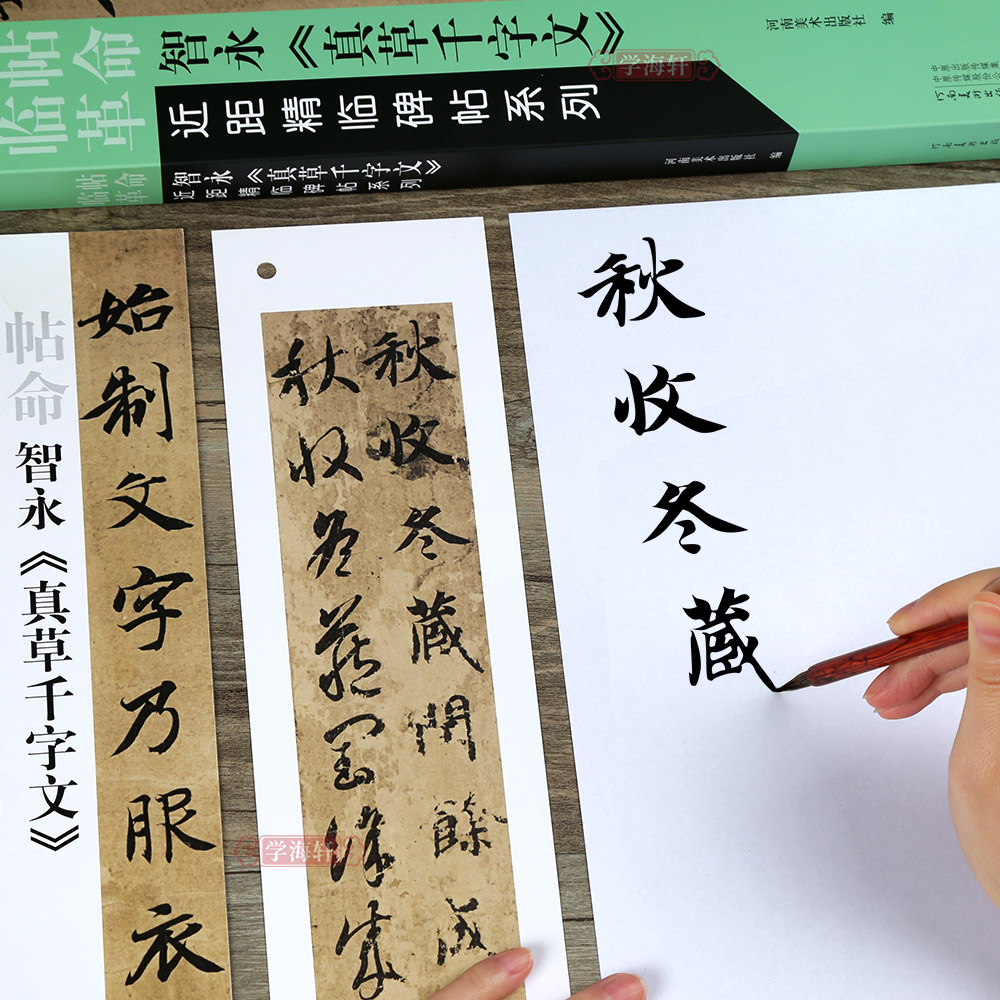 临帖
革命
智永《真草千字文》
河南美术出版社 编
近距精临碑帖系列
学海轩
临帖
革命
智永《真草千字文》
近距精临碑帖系列
河南美术出版社 编
帖
命
智永《真草千字文》
始制文字乃服衣
秋收冬藏閏餘成
秋收冬藏閏餘成
学海轩
秋收冬藏